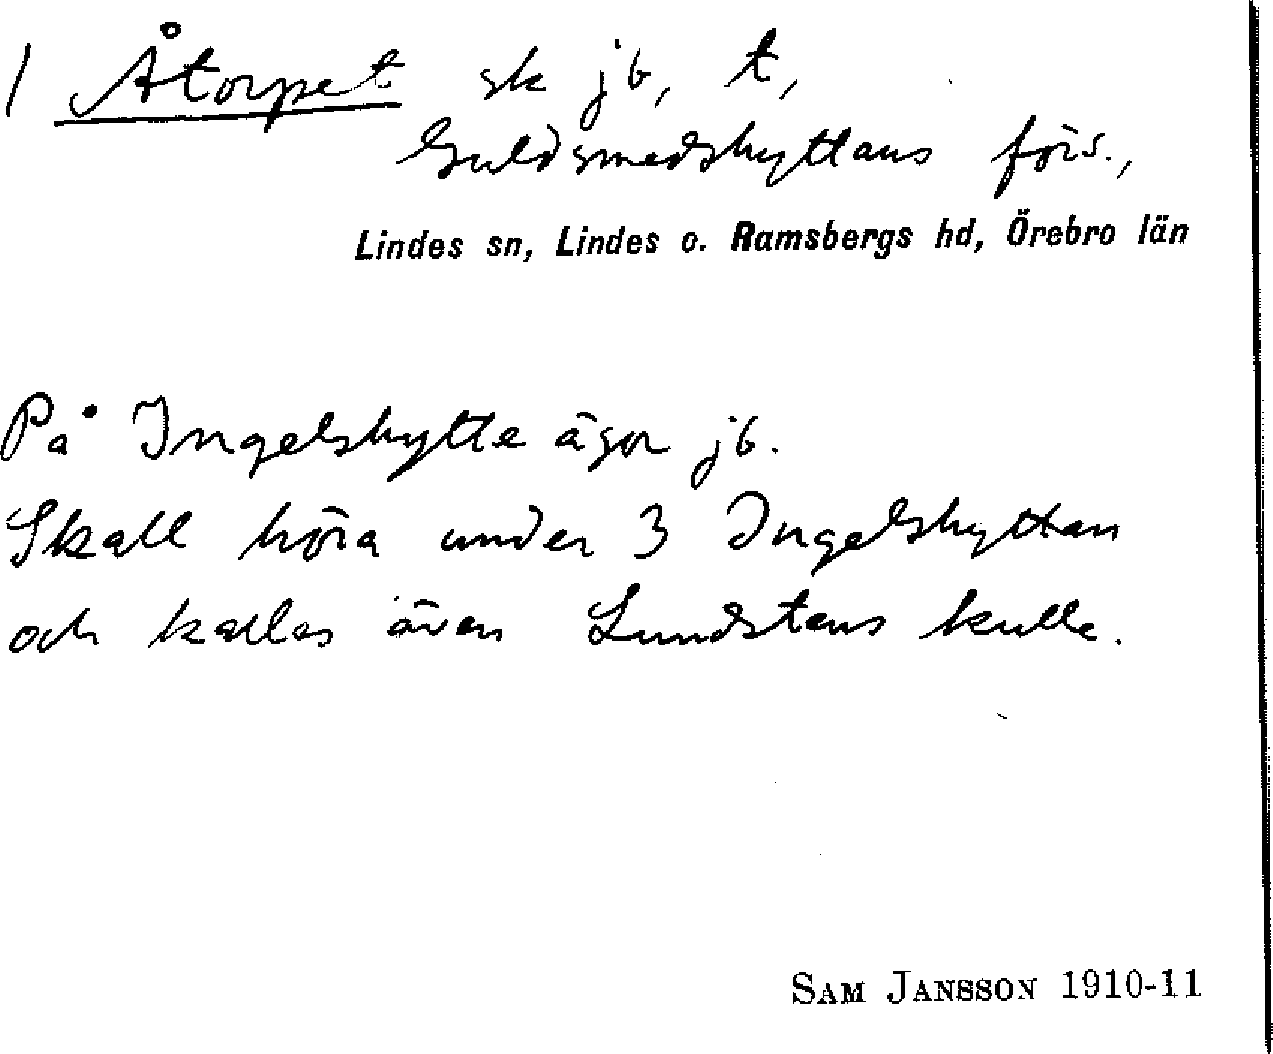 1 Åtorpet sk jb, t,
Guldsmedshyttans förs.,
Lindes sn, Lindes o. Ramsbergs hd, Örebro län
På Ingelshytte ägor jb.
Skall höra under 3 Ingelshyttan
och kallas även Lundstens kulle.
SAM JANSSON 1910-11